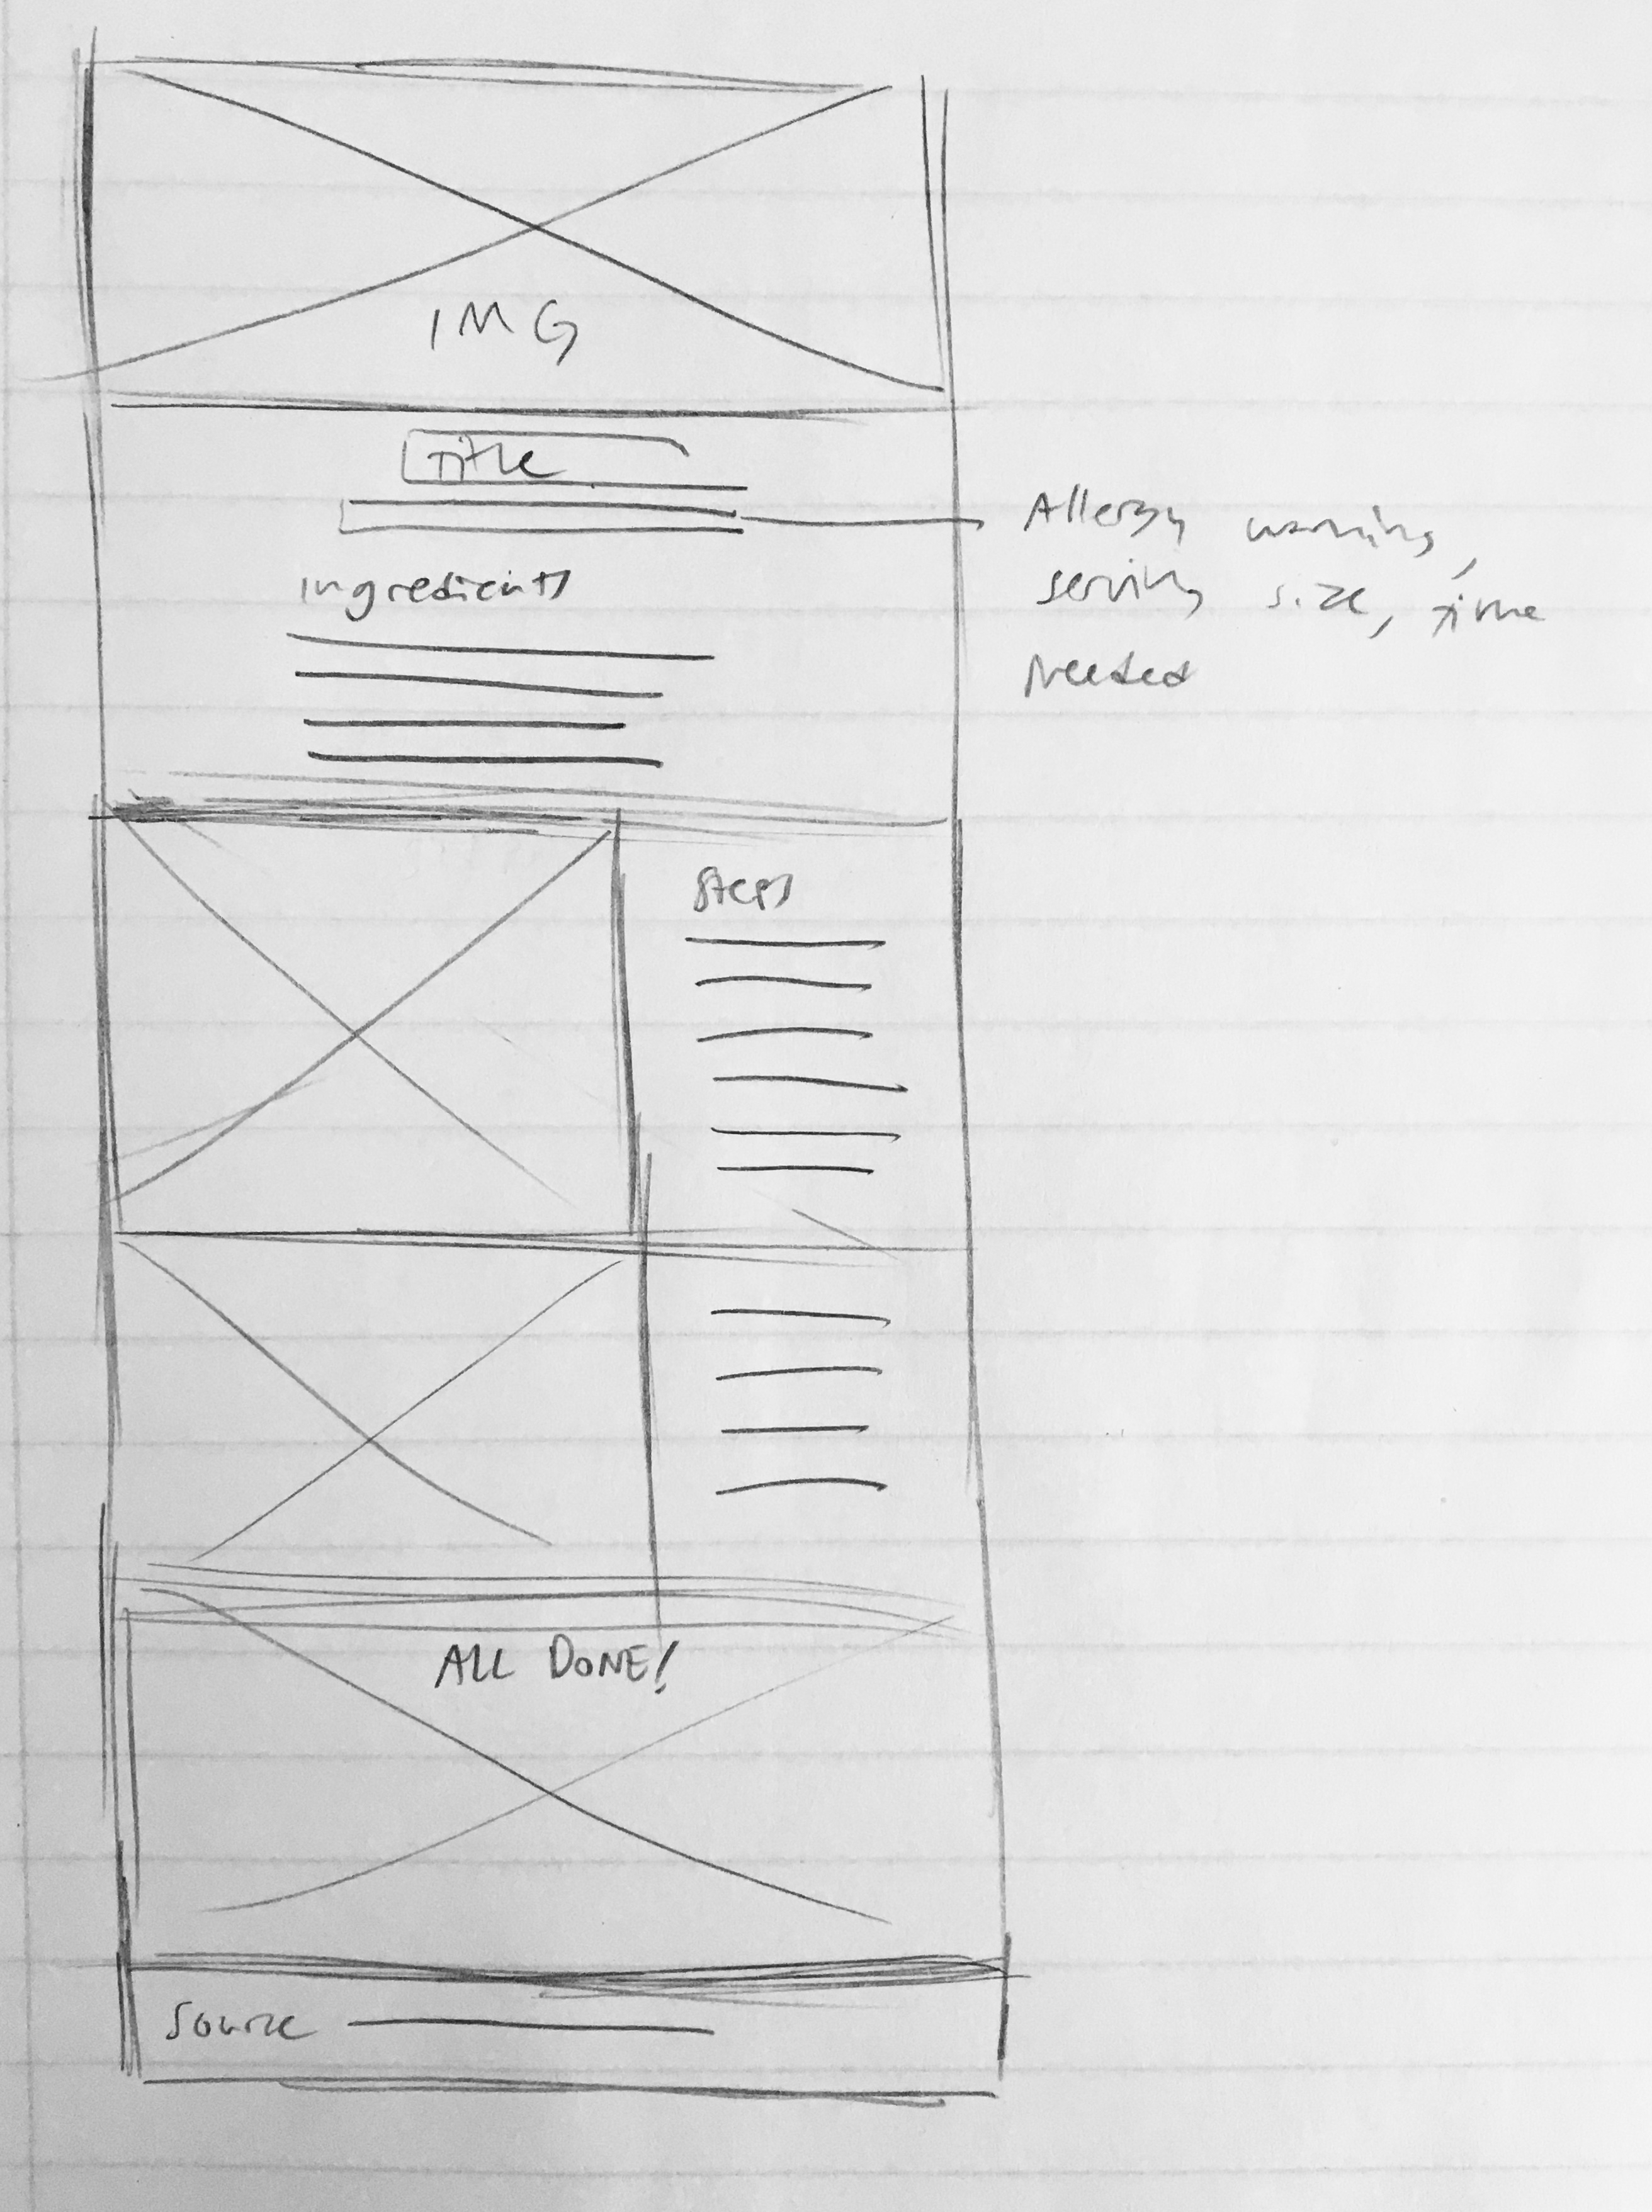 IMG
Title
Allergy warning,
serving size, time
needed
Ingredients
Steps
ALL DONE!
Source